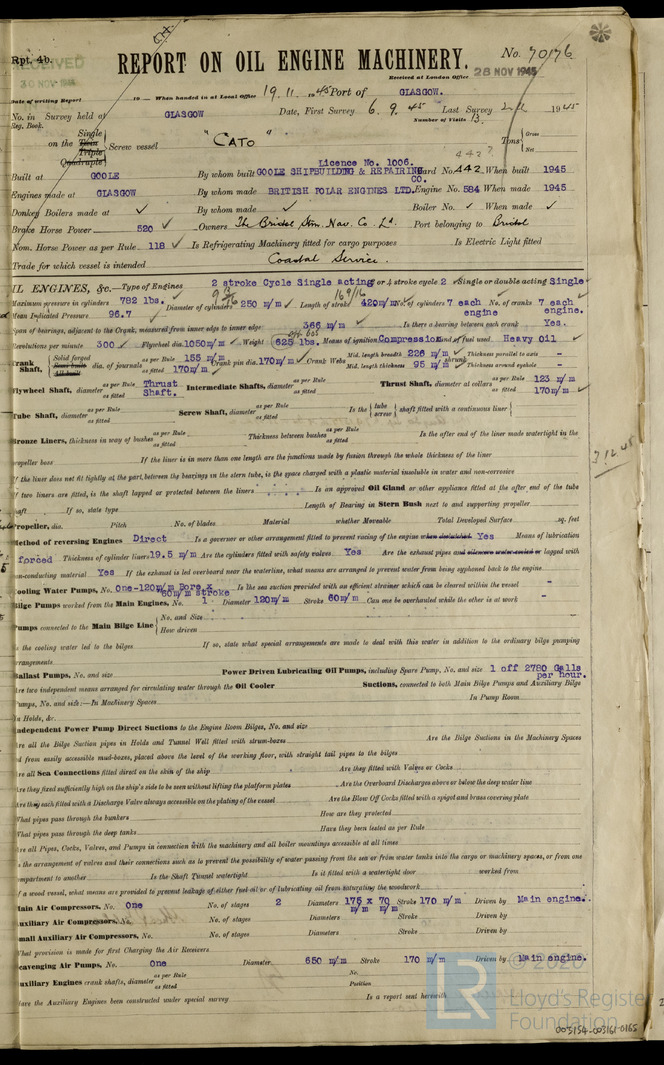 Rpt. 4b.
RECEIVED
30 NOV 1945
REPORT ON OIL ENGINE MACHINERY.
No. 70176
Received at London Office
28 NOV 1945
Date of writing Report 19 When handed in at Local Office 19.11.1945 Port of GLASGOW.
No. in Survey held at GLASGOW Date, First Survey 6.9.45 Last Survey 1945
Reg. Book.
Number of Visits 13.
on the Single Twin Triple Quadruple Screw vessel "CATO" Tons Gross Net
Licence No. 1006.
Built at GOOLE By whom built GOOLE SHIPBUILDING & REPAIRING CO. Yard No. 442 When built 1945
Engines made at GLASGOW By whom made BRITISH POLAR ENGINES LTD. Engine No. 584 When made 1945
Donkey Boilers made at ✓ By whom made ✓ Boiler No. ✓ When made ✓
Brake Horse Power 520 Owners The Bristol Stm. Nav. Co. Ld. Port belonging to Bristol
Nom. Horse Power as per Rule 118 ✓ Is Refrigerating Machinery fitted for cargo purposes Is Electric Light fitted
Trade for which vessel is intended Coastal Service.
OIL ENGINES, &c.—Type of Engines 2 stroke Cycle Single acting 2 or 4 stroke cycle 2 Single or double acting Single
Maximum pressure in cylinders 782 lbs. Diameter of cylinders 250 m/m Length of stroke 420 m/m No. of cylinders 7 each engine No. of cranks 7 each engine.
Mean Indicated Pressure 96.7
Span of bearings, adjacent to the Crank, measured from inner edge to inner edge 366 m/m Is there a bearing between each crank Yes.
Revolutions per minute 300 Flywheel dia. 1050 m/m Weight 625 lbs. Means of ignition Compression Kind of fuel used Heavy Oil
Crank Shaft, Solid forged Semi built All built dia. of journals as per Rule 155 m/m as fitted 170 m/m Crank pin dia. 170 m/m Crank Webs Mid. length breadth 226 m/m Mid. length thickness 95 m/m shrunk Thickness parallel to axis - Thickness around eyehole -
Flywheel Shaft, diameter as per Rule as fitted Thrust Shaft. Intermediate Shafts, diameter as per Rule as fitted Thrust Shaft, diameter at collars as per Rule 123 m/m as fitted 170 m/m
Tube Shaft, diameter as per Rule as fitted Screw Shaft, diameter as per Rule as fitted Is the tube screw shaft fitted with a continuous liner
Bronze Liners, thickness in way of bushes as per Rule as fitted Thickness between bushes as per Rule as fitted Is the after end of the liner made watertight in the
propeller boss If the liner is in more than one length are the junctions made by fusion through the whole thickness of the liner
If the liner does not fit tightly at the part between the bearings in the stern tube, is the space charged with a plastic material insoluble in water and non-corrosive
If two liners are fitted, is the shaft lapped or protected between the liners Is an approved Oil Gland or other appliance fitted at the after end of the tube
shaft If so, state type Length of Bearing in Stern Bush next to and supporting propeller
Propeller, dia. Pitch No. of blades Material whether Moveable Total Developed Surface sq. feet
Method of reversing Engines Direct Is a governor or other arrangement fitted to prevent racing of the engine when declutched Yes Means of lubrication
forced Thickness of cylinder liners 19.5 m/m Are the cylinders fitted with safety valves Yes Are the exhaust pipes and silencers water cooled or lagged with
non-conducting material Yes If the exhaust is led overboard near the waterline, what means are arranged to prevent water from being syphoned back to the engine
Cooling Water Pumps, No. One-120m/m Bore x 60 m/m stroke Is the sea suction provided with an efficient strainer which can be cleared within the vessel -
Bilge Pumps worked from the Main Engines, No. 1 Diameter 120m/m Stroke 60m/m Can one be overhauled while the other is at work -
Pumps connected to the Main Bilge Line No. and Size How driven
Is the cooling water led to the bilges If so, state what special arrangements are made to deal with this water in addition to the ordinary bilge pumping
arrangements
Ballast Pumps, No. and size Power Driven Lubricating Oil Pumps, including Spare Pump, No. and size 1 off 2780 Galls per hour.
Are two independent means arranged for circulating water through the Oil Cooler Suctions, connected to both Main Bilge Pumps and Auxiliary Bilge
Pumps, No. and size:—In Machinery Spaces In Pump Room
In Holds, &c.
Independent Power Pump Direct Suctions to the Engine Room Bilges, No. and size
Are all the Bilge Suction pipes in Holds and Tunnel Well fitted with strum-boxes Are the Bilge Suctions in the Machinery Spaces
led from easily accessible mud-boxes, placed above the level of the working floor, with straight tail pipes to the bilges
Are all Sea Connections fitted direct on the skin of the ship Are they fitted with Valves or Cocks
Are they fixed sufficiently high on the ship's side to be seen without lifting the platform plates Are the Overboard Discharges above or below the deep water line
Are they each fitted with a Discharge Valve always accessible on the plating of the vessel Are the Blow Off Cocks fitted with a spigot and brass covering plate
What pipes pass through the bunkers How are they protected
What pipes pass through the deep tanks Have they been tested as per Rule
Are all Pipes, Cocks, Valves, and Pumps in connection with the machinery and all boiler mountings accessible at all times
Is the arrangement of valves and their connections such as to prevent the possibility of water passing from the sea or from water tanks into the cargo or machinery spaces, or from one
compartment to another Is the Shaft Tunnel watertight Is it fitted with a watertight door worked from
If a wood vessel, what means are provided to prevent leakage of either fuel oil or of lubricating oil from saturating the woodwork
Main Air Compressors, No. One No. of stages 2 Diameters 175 x 70 m/m m/m Stroke 170 m/m Driven by Main engine.
Auxiliary Air Compressors, No. No. of stages Diameters Stroke Driven by
Small Auxiliary Air Compressors, No. No. of stages Diameters Stroke Driven by
What provision is made for first Charging the Air Receivers
Scavenging Air Pumps, No. One Diameter 650 m/m Stroke 170 m/m Driven by Main engine.
Auxiliary Engines crank shafts, diameter as per Rule as fitted No. Position
Have the Auxiliary Engines been constructed under special survey Is a report sent herewith
© 2020
LR
Lloyd's Register
Foundation
003154-003161-0165